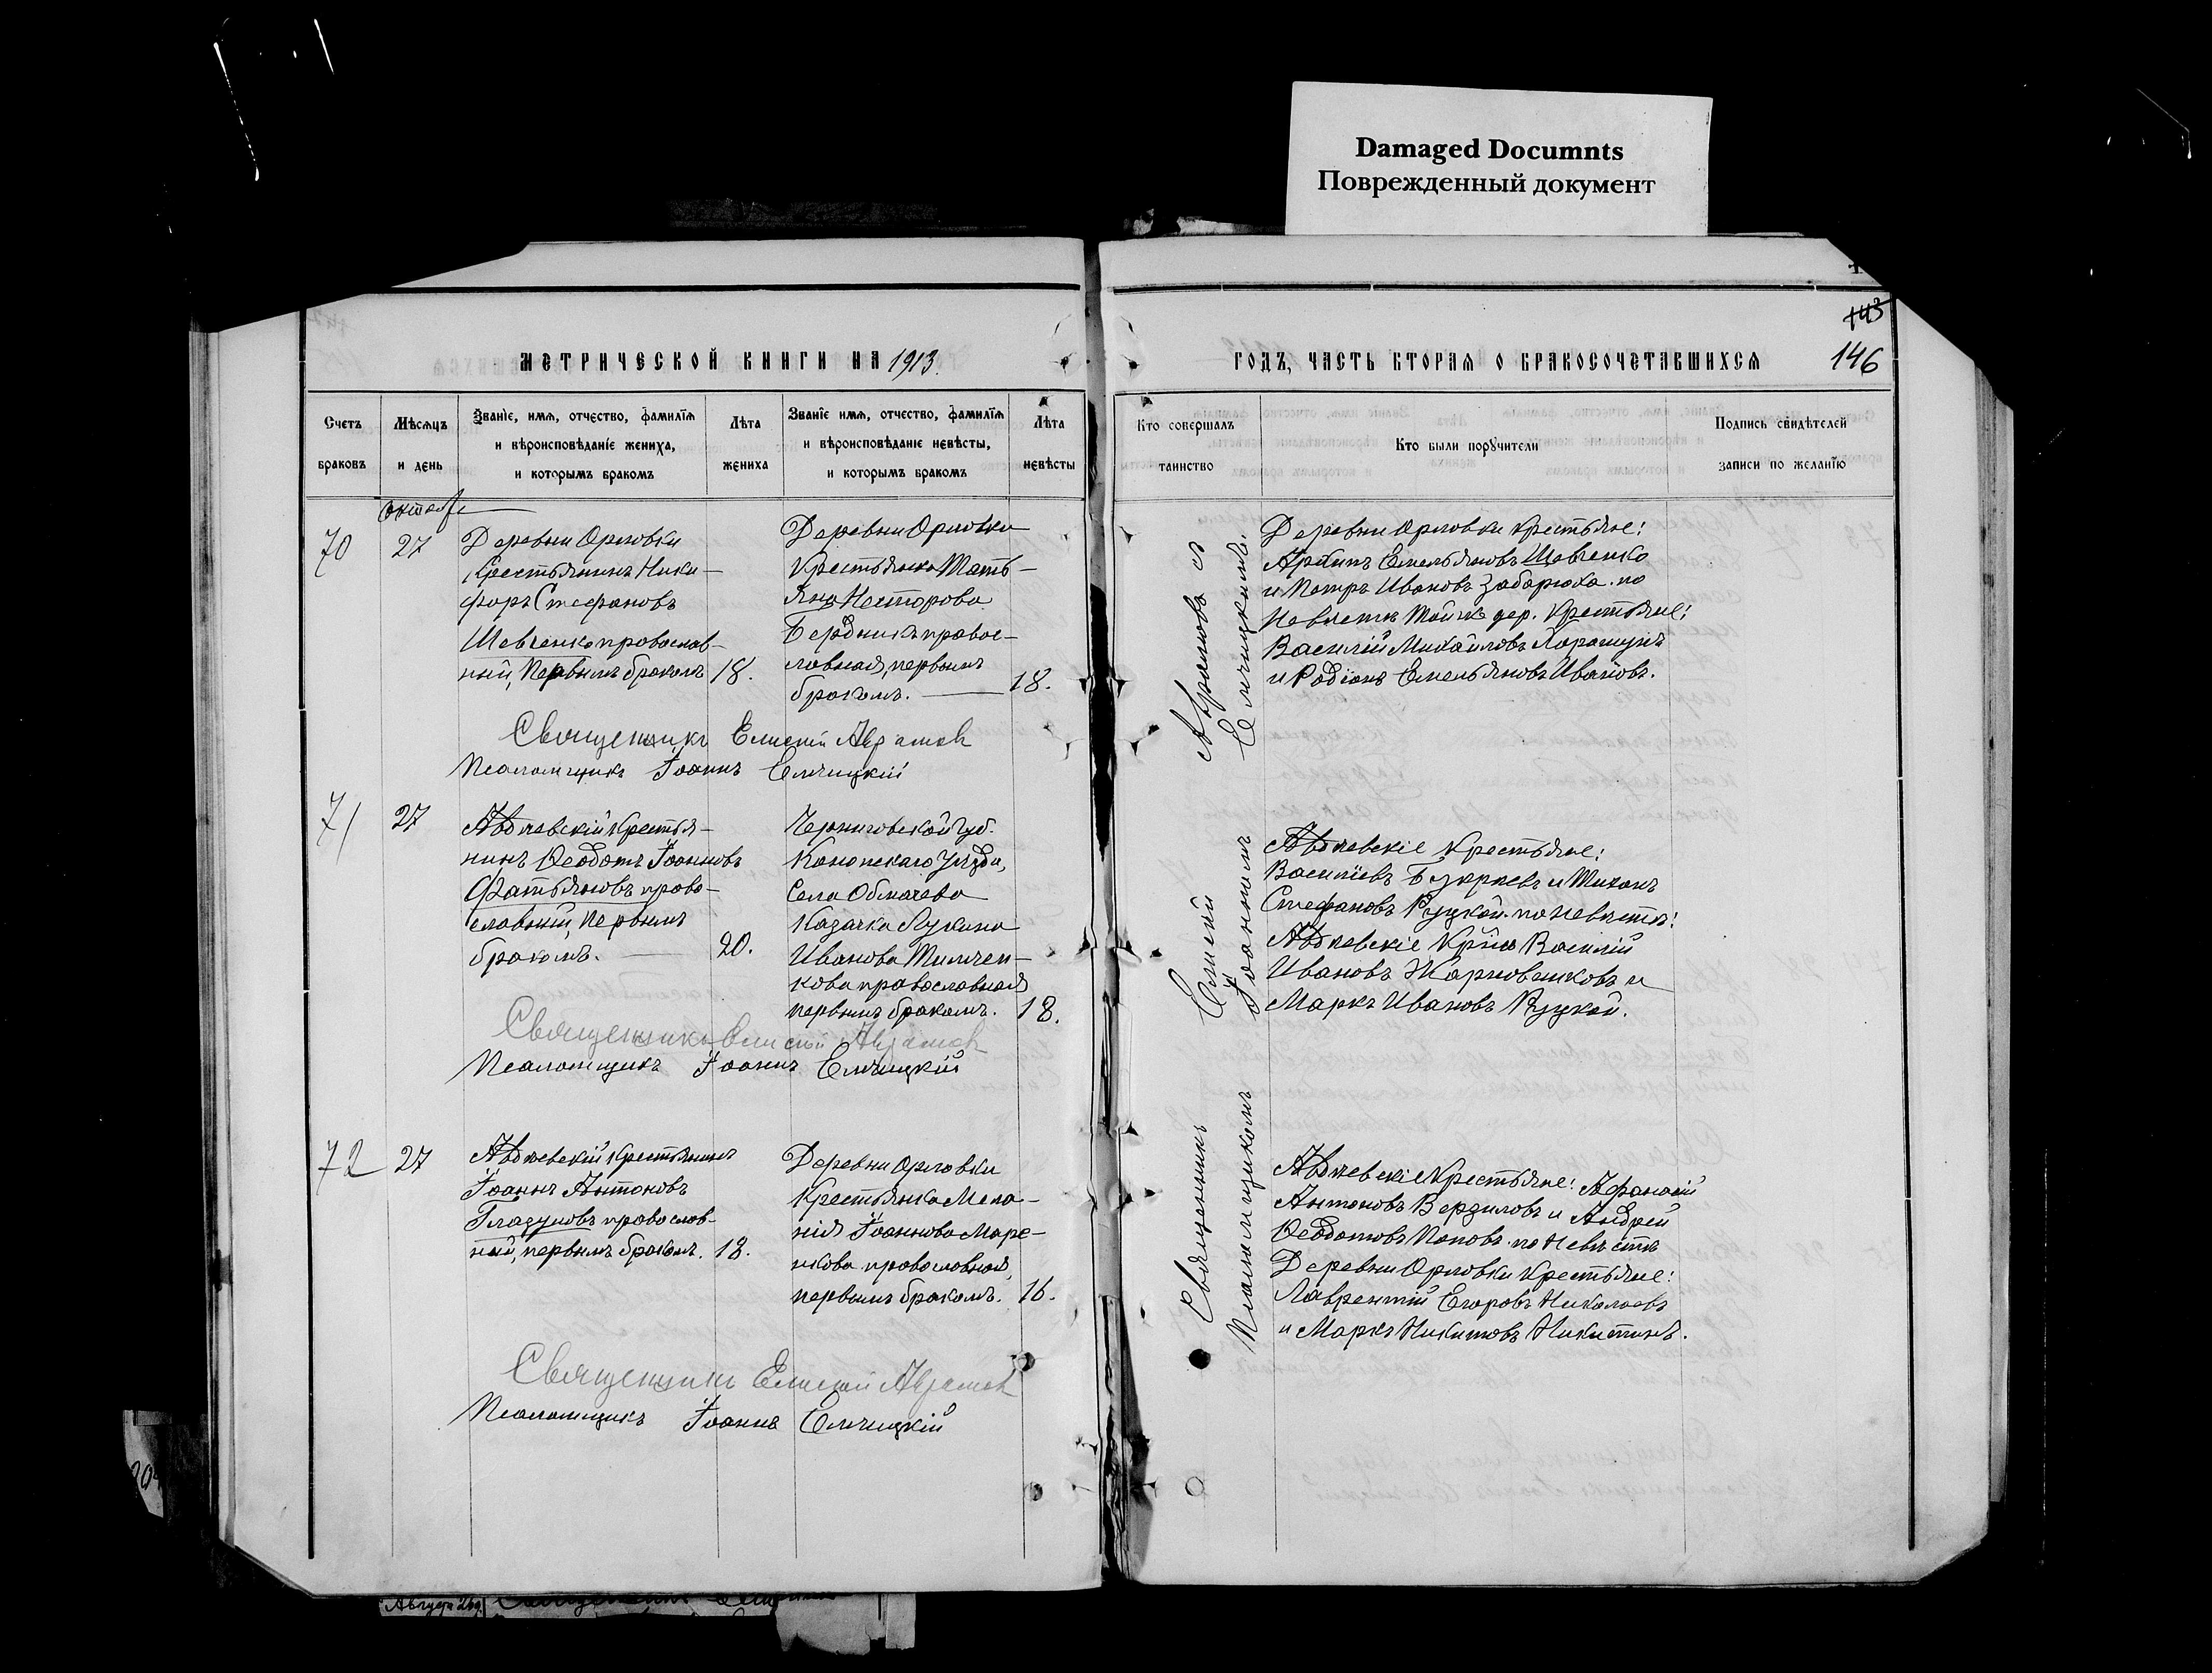 Damaged Documnts
Поврежденный документ
143
146
МЕТРИЧЕСКОЙ КНИГИ НА 1913.
ГОДЪ, ЧАСТЬ ВТОРАЯ О БРАКОСОЧЕТАВШИХСЯ
Счетъ
браковъ
Мѣсяцъ
и день
Званіе, имя, отчество, фамилія
и вѣроисповѣданіе жениха,
и которымъ бракомъ
Лѣта
жениха
Званіе имя, отчество, фамилія
и вѣроисповѣданіе невѣсты,
и которымъ бракомъ
Лѣта
невѣсты
Кто совершалъ
таинство
Кто были поручители
Подпись свидѣтелей
записи по желанію
70
27
Деревни Орловки
Крестьянинъ Ники-
форъ Стефановъ
Шевченко православ-
ный, Первымъ бракомъ
18.
Деревни Орловки
Крестьянка Тать-
яна Несторова
Бердникъ правос-
лавная, первымъ
бракомъ.
18.
Деревни Орловки крестьяне:
Архипъ Емельяновъ Шевченко
и Петръ Ивановъ Забарюха. по
Невѣстѣ Той же дер. Крестьяне:
Василій Михайловъ
и Родіонъ Емельяновъ Ивановъ.
Священникъ Елисей Аврамов
Псаломщикъ Іоаннъ Елчицкій
71
27
Авдѣевскій крестья-
нинъ Ѳеодотъ Іоанновъ
Фатьяновъ право-
славный, первымъ
бракомъ.
20.
Черниговской губ.
Конопскаго уѣзда,
Села Обмачева
Казачка Лукина
Иванова Тимчен-
кова православная
первымъ бракомъ.
18.
Авдѣевскіе крестьяне:
Василіевъ и Тихонъ
Стефановъ Руцкой. по невѣстѣ:
Авдѣевскіе Кр-не Василій
Ивановъ Жарновниковъ и
Маркъ Ивановъ Руцкой.
Священникъ Елисей Аврамов
Псаломщикъ Іоаннъ Елчицкій
72
27
Авдѣевскій крестьянинъ
Іоаннъ Антоновъ
Глазуновъ православ-
ный, первымъ бракомъ.
18.
Деревни Орловки
Крестьянка Мела-
нія Іоаннова Маре-
никова православная,
первымъ бракомъ.
16.
Авдѣевскіе Крестьяне: Афанасій
Антоновъ Верзиловъ и Андрей
Ѳеодотовъ Поповъ. по Невѣстѣ
Деревни Орловки Крестьяне:
Лаврентій Егоровъ Николаевъ
и Маркъ Никитовъ Никитинъ.
Священникъ Елисей Аврамов
Псаломщикъ Іоаннъ Елчицкій
Священникъ Елисей Аврамовъ с
Псаломщикомъ Іоанномъ Елчицкимъ.